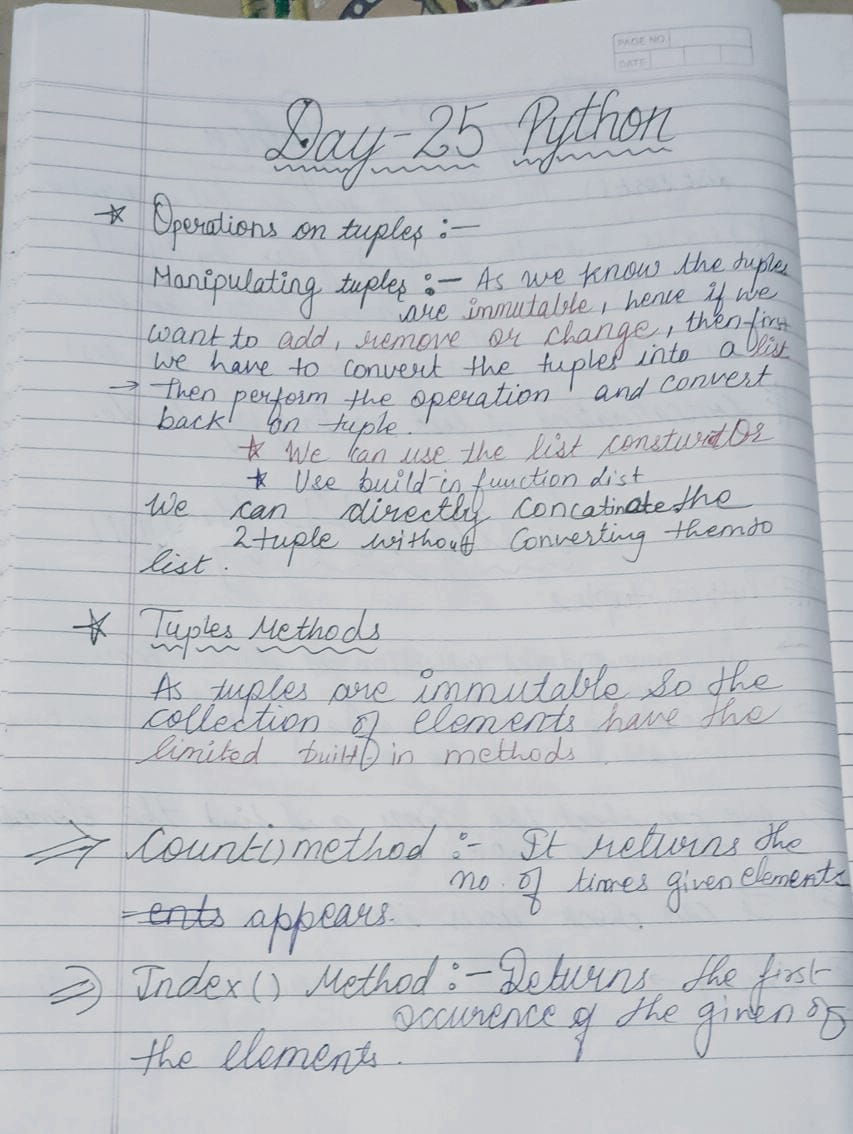 PAGE NO.
DATE
Day-25 Python
* Operations on tuples :-
Manipulating tuples :- As we know the tuples
are immutable, hence if we
want to add, remove or change, then first
we have to convert the tuples into a list
→ then perform the operation and convert
back on tuple.
* We can use the list
* Use build-in function
We can directly concatinate the
2 tuple without Converting them to
list.
* Tuples Methods
As tuples are immutable So the
collection of elements have the
limited built in methods
⇒ Count() method :- It returns the
no. of times given elements
ents appears.
⇒ Index() Method :- Returns the first
occurence of the given of
the elements.